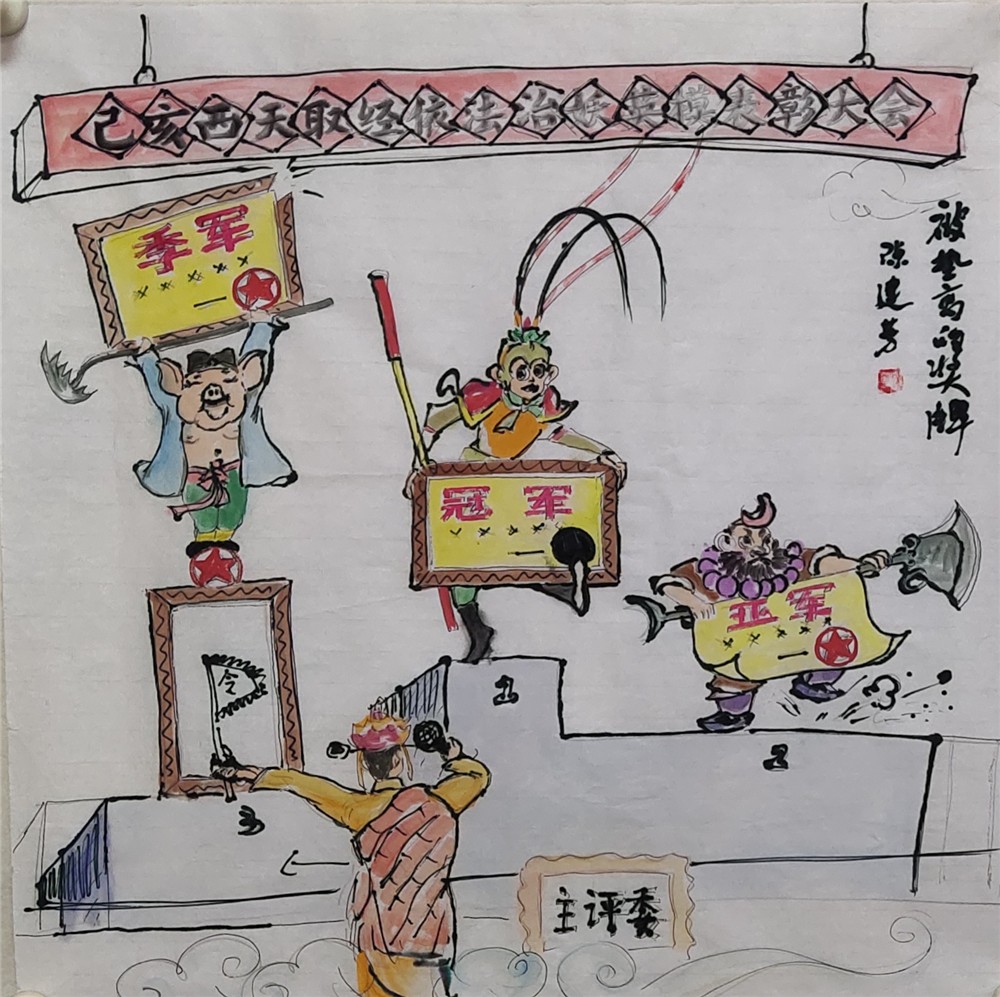 己亥西天取经依法治妖英模表彰大会
被垫高的奖牌
陈建芳
季军
×××××
冠军
×××××
亚军
×××××
令
1
2
3
主评委